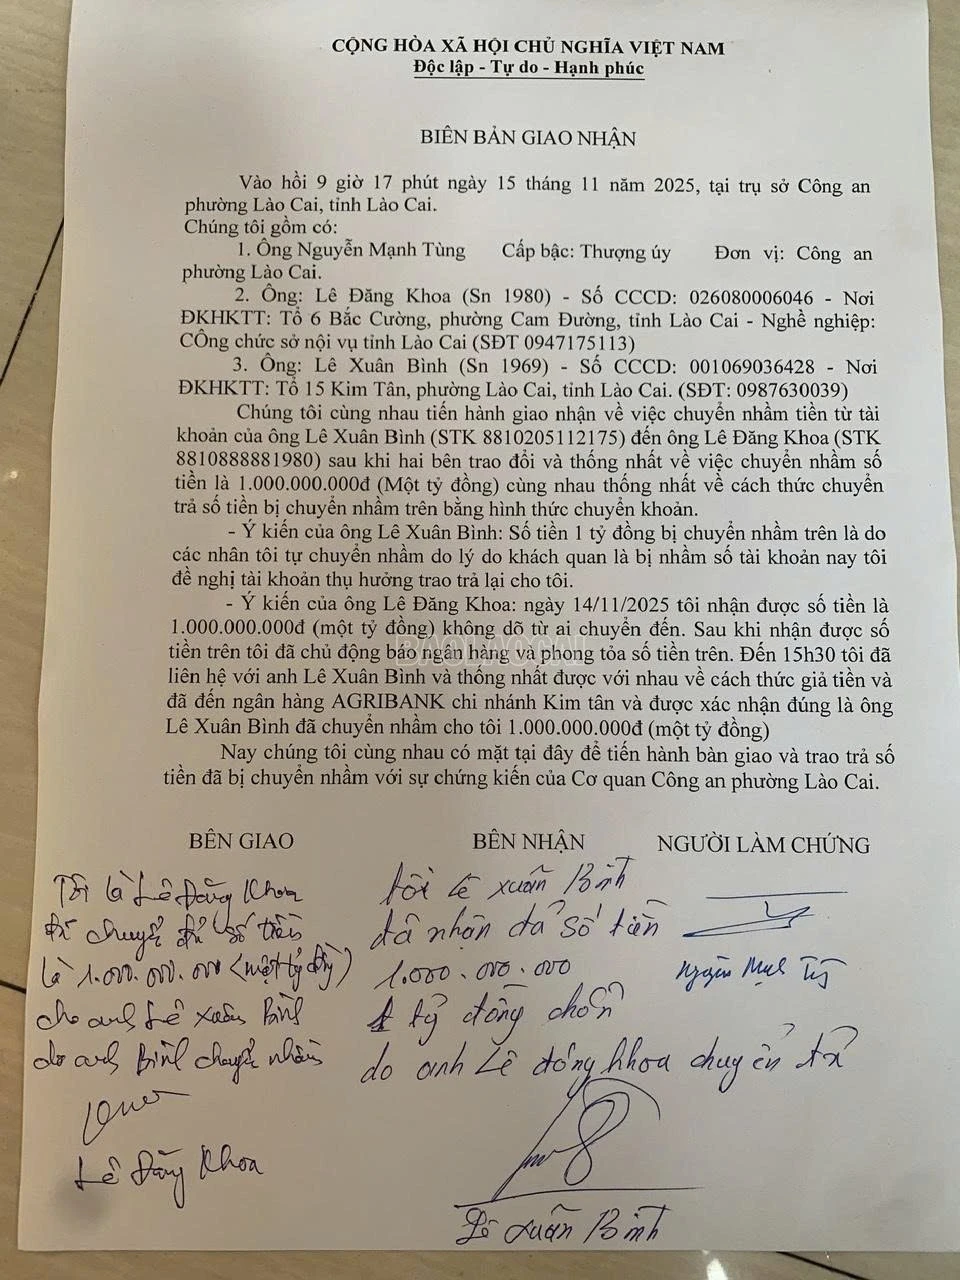 CỘNG HÒA XÃ HỘI CHỦ NGHĨA VIỆT NAM
Độc lập - Tự do - Hạnh phúc
BIÊN BẢN GIAO NHẬN
Vào hồi 9 giờ 17 phút ngày 15 tháng 11 năm 2025, tại trụ sở Công an
phường Lào Cai, tỉnh Lào Cai.
Chúng tôi gồm có:
1. Ông Nguyễn Mạnh Tùng Cấp bậc: Thượng úy Đơn vị: Công an
phường Lào Cai.
2. Ông: Lê Đăng Khoa (Sn 1980) - Số CCCD: 026080006046 - Nơi
ĐKHKTT: Tổ 6 Bắc Cường, phường Cam Đường, tỉnh Lào Cai - Nghề nghiệp:
CÔng chức sở nội vụ tỉnh Lào Cai (SĐT 0947175113)
3. Ông: Lê Xuân Bình (Sn 1969) - Số CCCD: 001069036428 - Nơi
ĐKHKTT: Tổ 15 Kim Tân, phường Lào Cai, tỉnh Lào Cai. (SĐT: 0987630039)
Chúng tôi cùng nhau tiến hành giao nhận về việc chuyển nhầm tiền từ tài
khoản của ông Lê Xuân Bình (STK 8810205112175) đến ông Lê Đăng Khoa (STK
8810888881980) sau khi hai bên trao đổi và thống nhất về việc chuyển nhầm số
tiền là 1.000.000.000đ (Một tỷ đồng) cùng nhau thống nhất về cách thức chuyển
trả số tiền bị chuyển nhầm trên bằng hình thức chuyển khoản.
- Ý kiến của ông Lê Xuân Bình: Số tiền 1 tỷ đồng bị chuyển nhầm trên là do
các nhân tôi tự chuyển nhầm do lý do khách quan là bị nhầm số tài khoản nay tôi
đề nghị tài khoản thụ hưởng trao trả lại cho tôi.
- Ý kiến của ông Lê Đăng Khoa: ngày 14/11/2025 tôi nhận được số tiền là
1.000.000.000đ (một tỷ đồng) không dõ từ ai chuyển đến. Sau khi nhận được số
tiền trên tôi đã chủ động báo ngân hàng và phong tỏa số tiền trên. Đến 15h30 tôi đã
liên hệ với anh Lê Xuân Bình và thống nhất được với nhau về cách thức giả tiền và
đã đến ngân hàng AGRIBANK chi nhánh Kim tân và được xác nhận đúng là ông
Lê Xuân Bình đã chuyển nhầm cho tôi 1.000.000.000đ (một tỷ đồng)
BAOLAOCAI
Nay chúng tôi cùng nhau có mặt tại đây để tiến hành bàn giao và trao trả số
tiền đã bị chuyển nhầm với sự chứng kiến của Cơ quan Công an phường Lào Cai.
BÊN GIAO BÊN NHẬN NGƯỜI LÀM CHỨNG
Tôi là Lê Đăng Khoa
Đã chuyển đủ số tiền
là 1.000.000.000 (một tỷ đồng)
cho anh Lê Xuân Bình
do anh Bình chuyển nhầm
Lê Đăng Khoa
tôi Lê Xuân Bình
đã nhận đủ số tiền
1.000.000.000
1 tỷ đồng chẵn
do anh Lê đăng khoa chuyển trả
Lê Xuân Bình
Nguyễn Mạnh Tùng